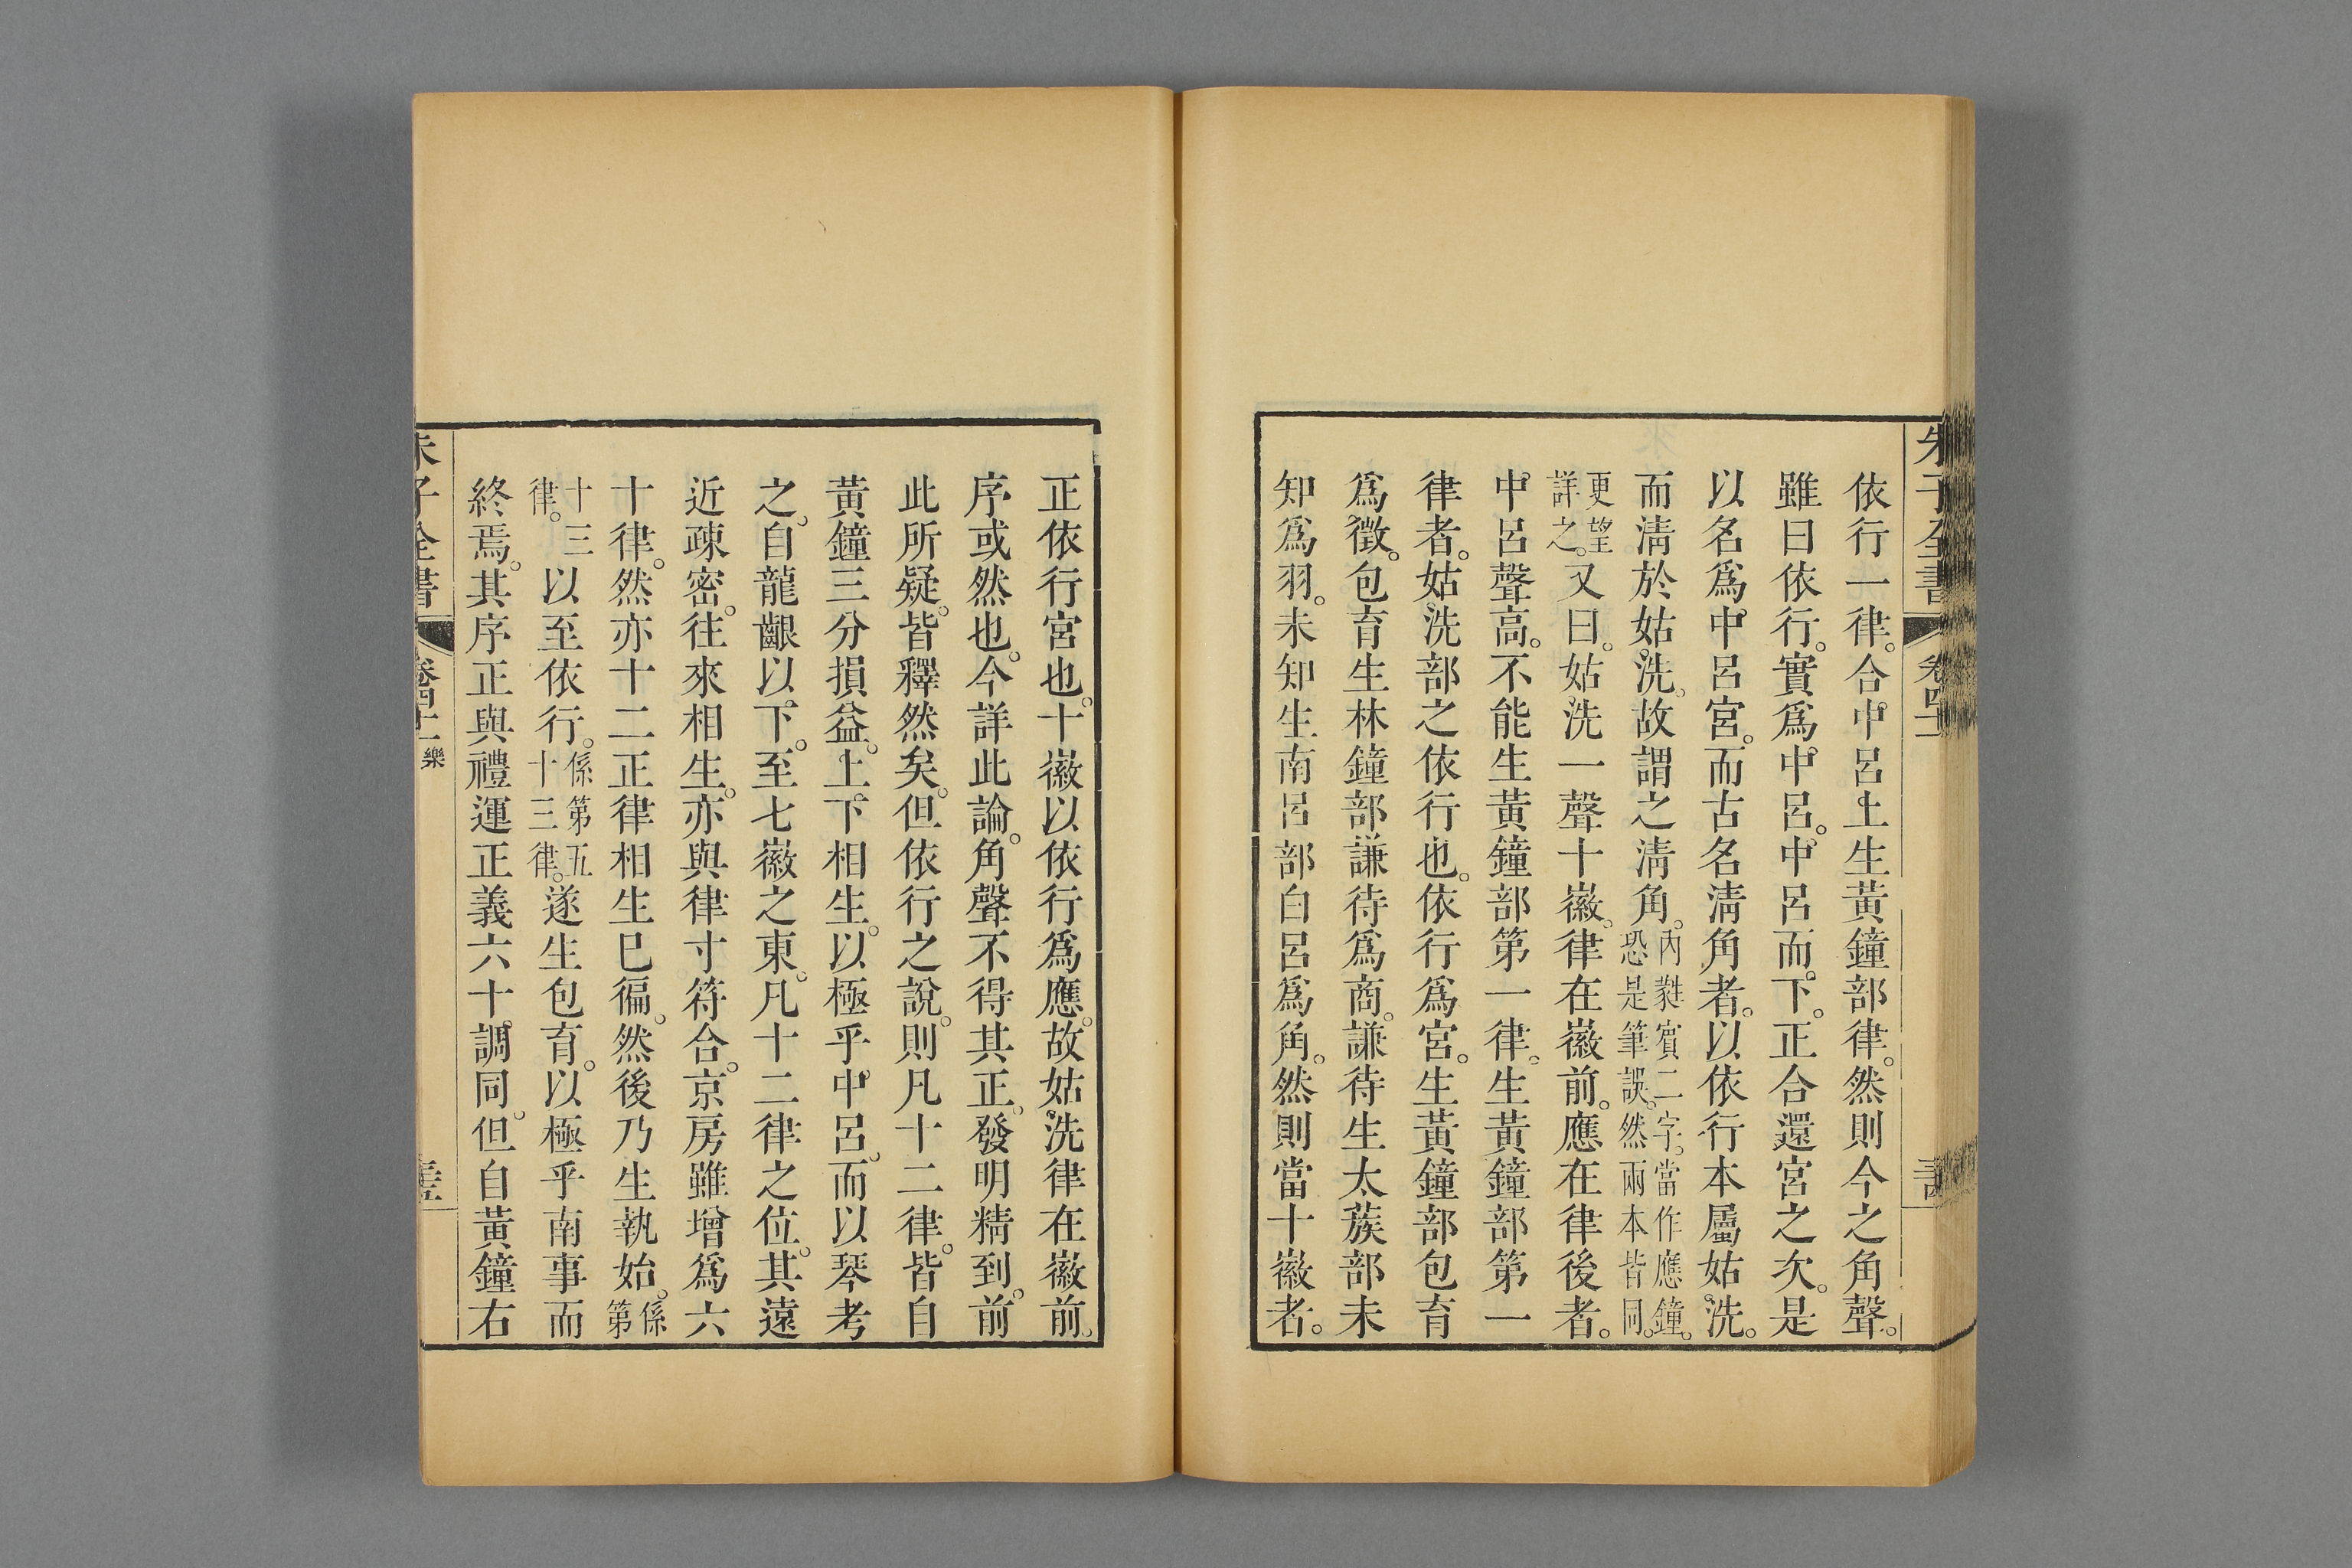 朱子全書 卷四十一
依行一律。合中呂上生黃鐘部律。然則今之角聲。
雖曰依行。實爲中呂。中呂而下。正合還宮之次。是
以名爲中呂宮。而古名淸角者。以依行本屬姑洗。
而淸於姑洗。故謂之淸角。內蕤賓二字。當作應鐘。恐是筆誤。然兩本皆同。
更望詳之。又曰。姑洗一聲十徽。律在徽前。應在律後者。
中呂聲高。不能生黃鐘部第一律。生黃鐘部第一
律者。姑洗部之依行也。依行爲宮。生黃鐘部包育
爲徵。包育生林鐘部謙待爲商。謙待生太蔟部未
知爲羽。未知生南呂部白呂爲角。然則當十徽者。
正依行宮也。十徽以依行爲應。故姑洗律在徽前。
序或然也。今詳此論。角聲不得其正。發明精到。前
此所疑。皆釋然矣。但依行之說。則凡十二律。皆自
黃鐘三分損益。上下相生。以極乎中呂。而以琴考
之。自龍齦以下。至七徽之東。凡十二律之位。其遠
近疎密。往來相生。亦與律寸符合。京房雖增爲六
十律。然亦十二正律相生巳徧。然後乃生執始。係第
十三律。以至依行。係第五十三律。遂生包育。以極乎南事而
終焉。其序正與禮運正義六十調同。但自黃鐘右
朱子全書 卷四十一 樂